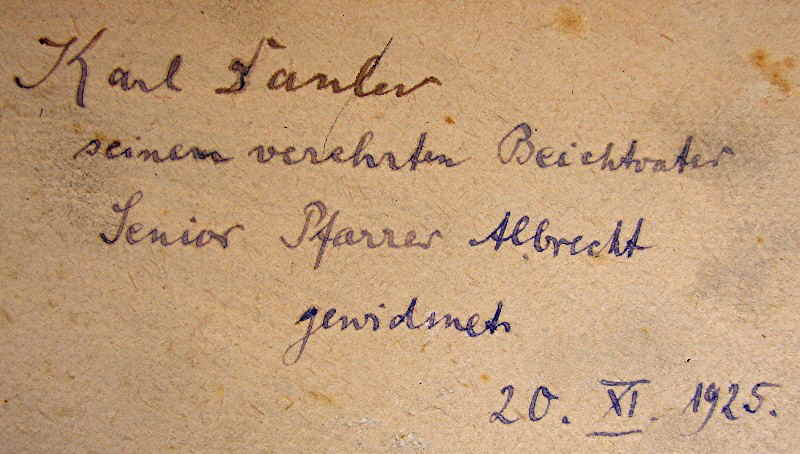 Karl Tauler
seinem verehrten Beichtvater
Senior Pfarrer Albrecht
gewidmet
20. XI. 1925.